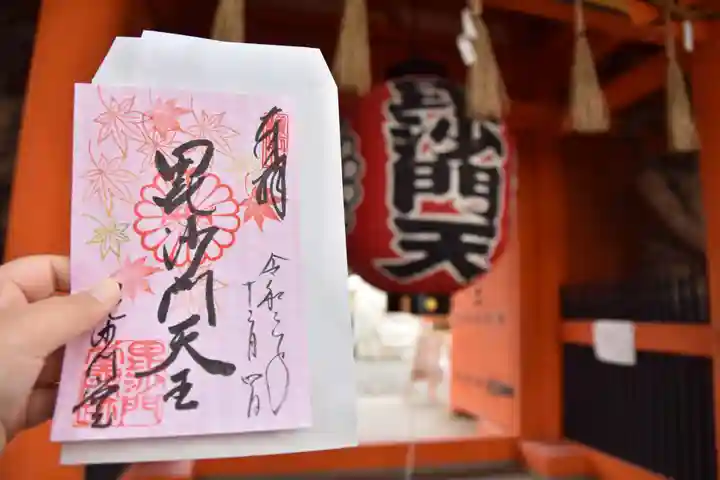 奉拝
毘沙門天王
令和二年
十二月四日
毘沙門堂
毘沙門天